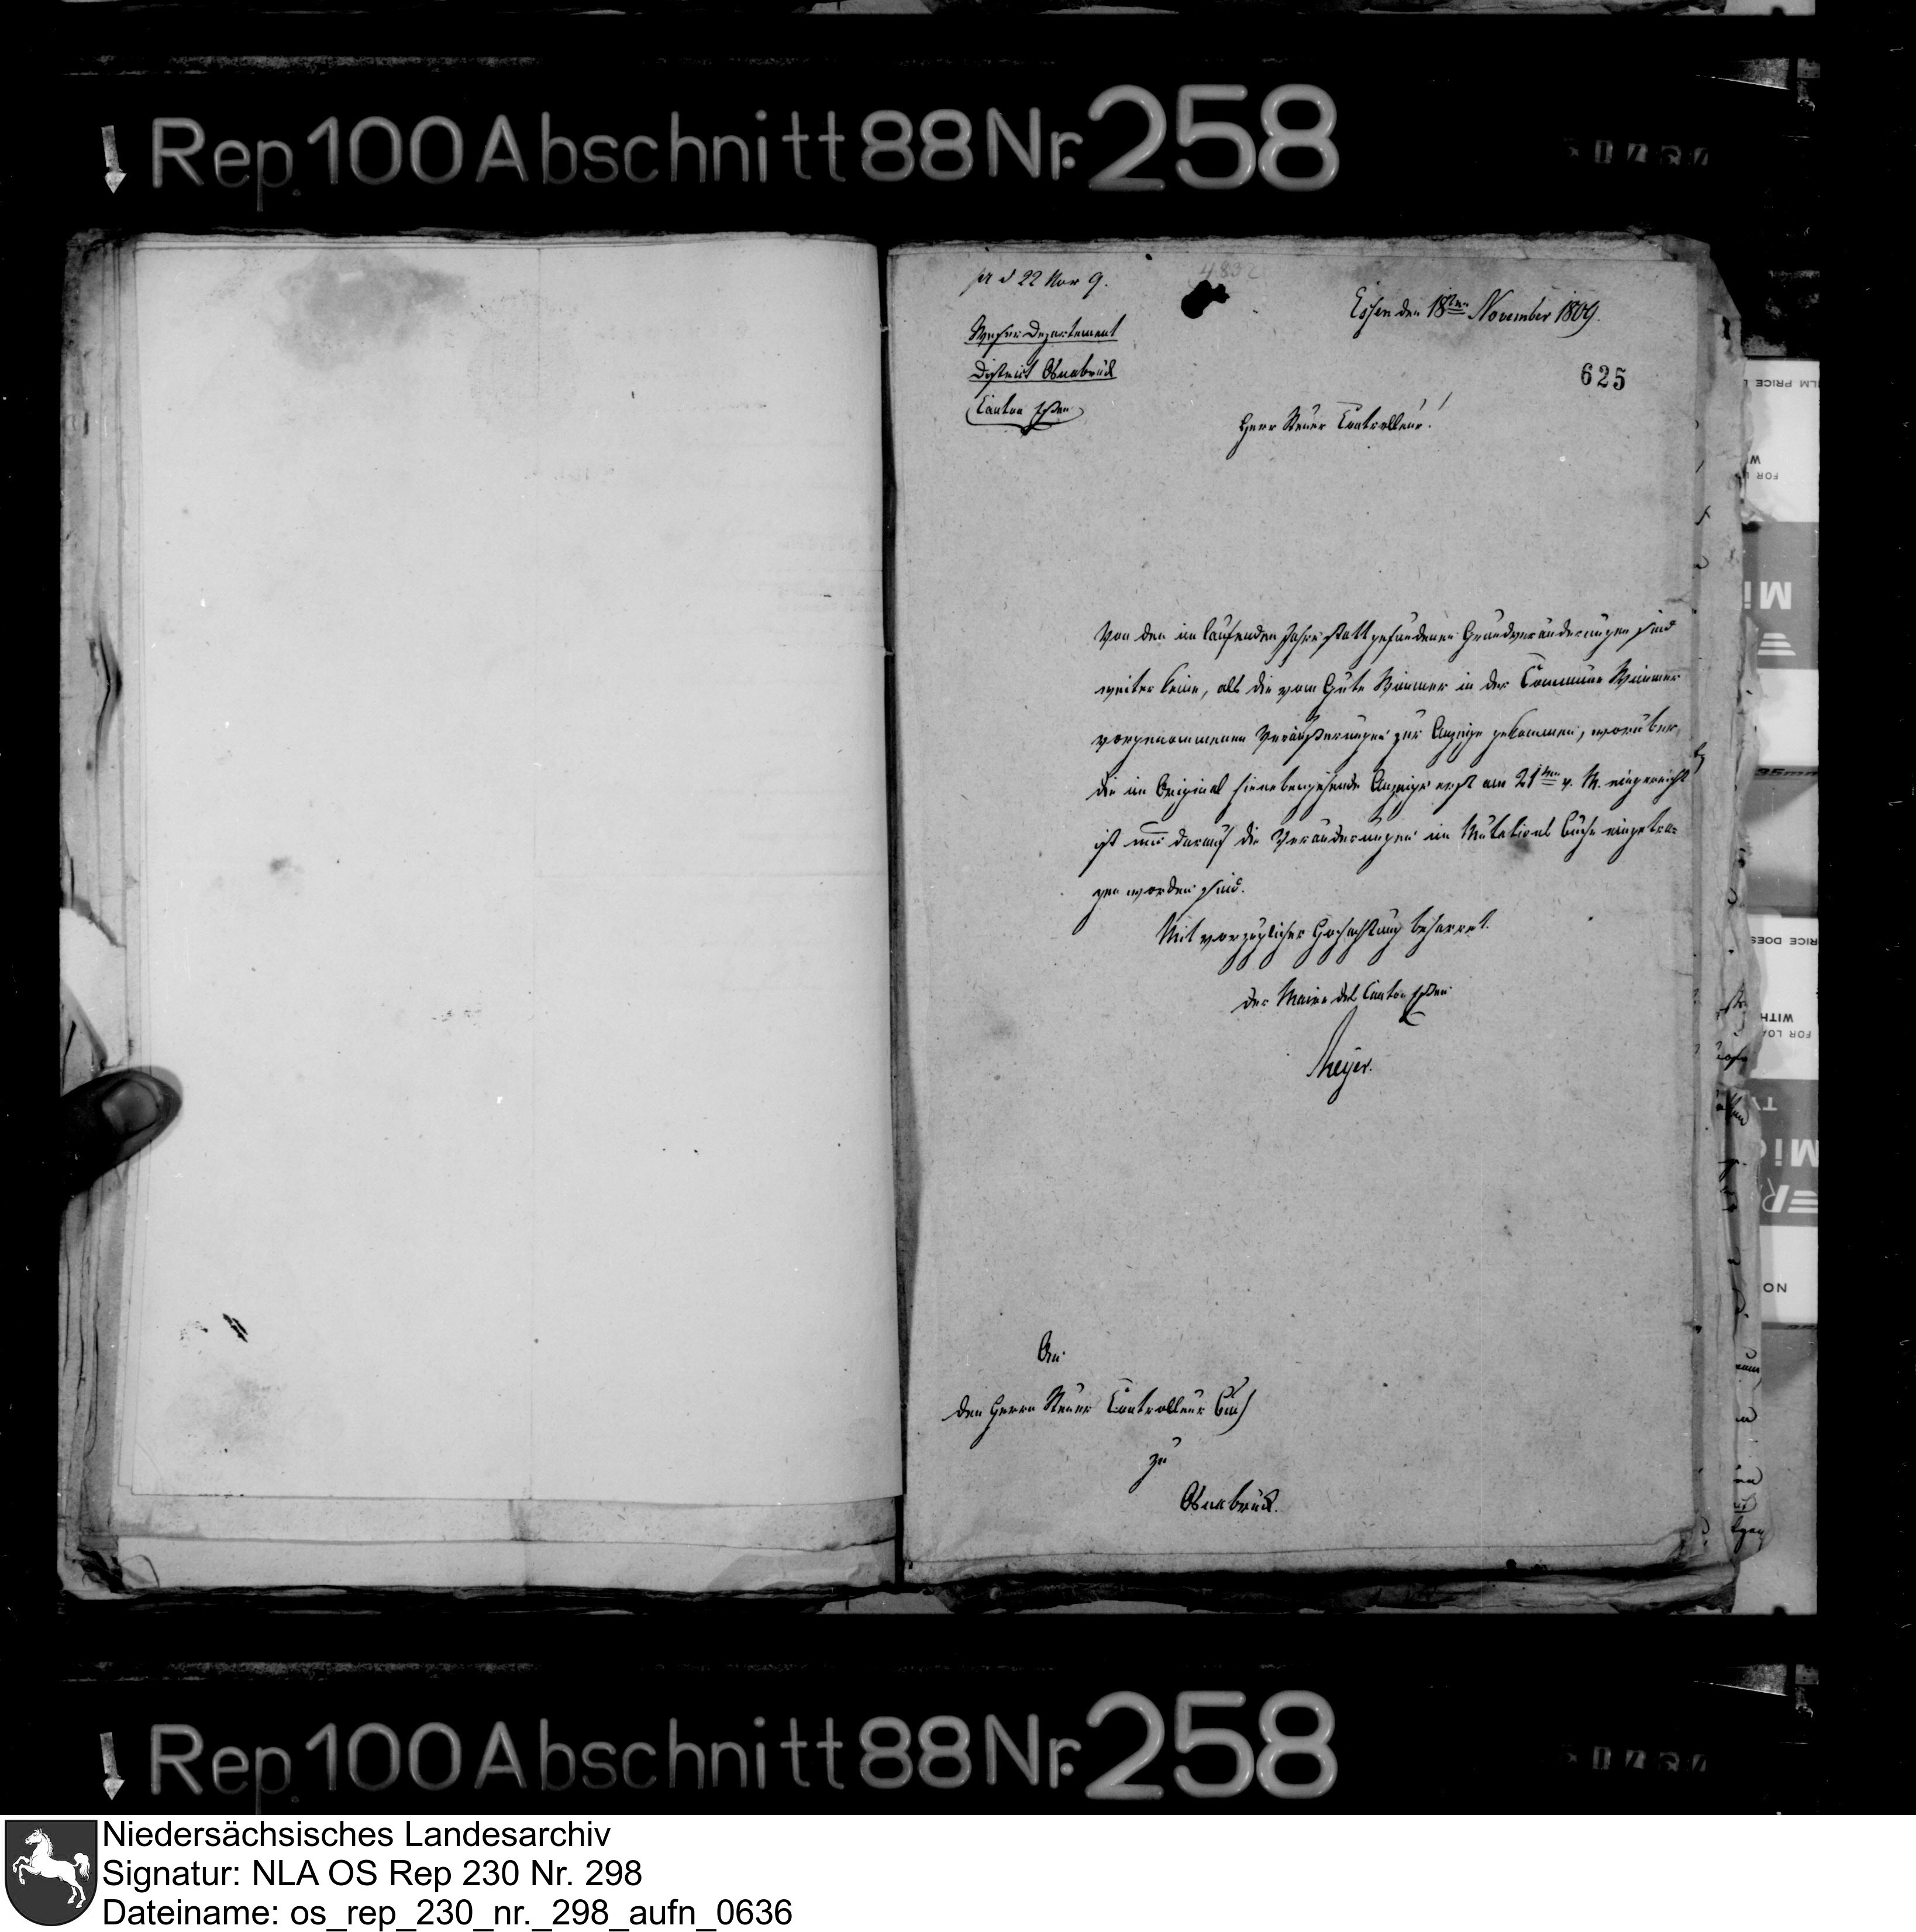 Rep. 100 Abschnitt 88 Nr. 258
pr d 22 Nov 9.
4832
Essen den 18ten November 1809.
Weser Departement
District Osnabrück
Canton Essen
625
Herr Steuer Controlleur!
Von den im laufenden Jahre statt gefundenen Grundveränderungen sind
weiter keine, als die vom Gute Wimmer in der Commüne Wimmer
vorgenommenen Veräußerungen zur Anzeige gekommen, worüber
die im Original hienebengehende Anzeige erst am 21ten v. M. eingereicht
ist und darauf die Veränderungen im Mutations Buche eingetra-
gen worden sind.
Mit vorzüglicher Hochachtung beharret.
der Maire des Canton Essen
Meyer.
An
den Herrn Steuer Controlleur
zu
Osnabrück.
Rep. 100 Abschnitt 88 Nr. 258
Niedersächsisches Landesarchiv
Signatur: NLA OS Rep 230 Nr. 298
Dateiname: os_rep_230_nr._298_aufn_0636